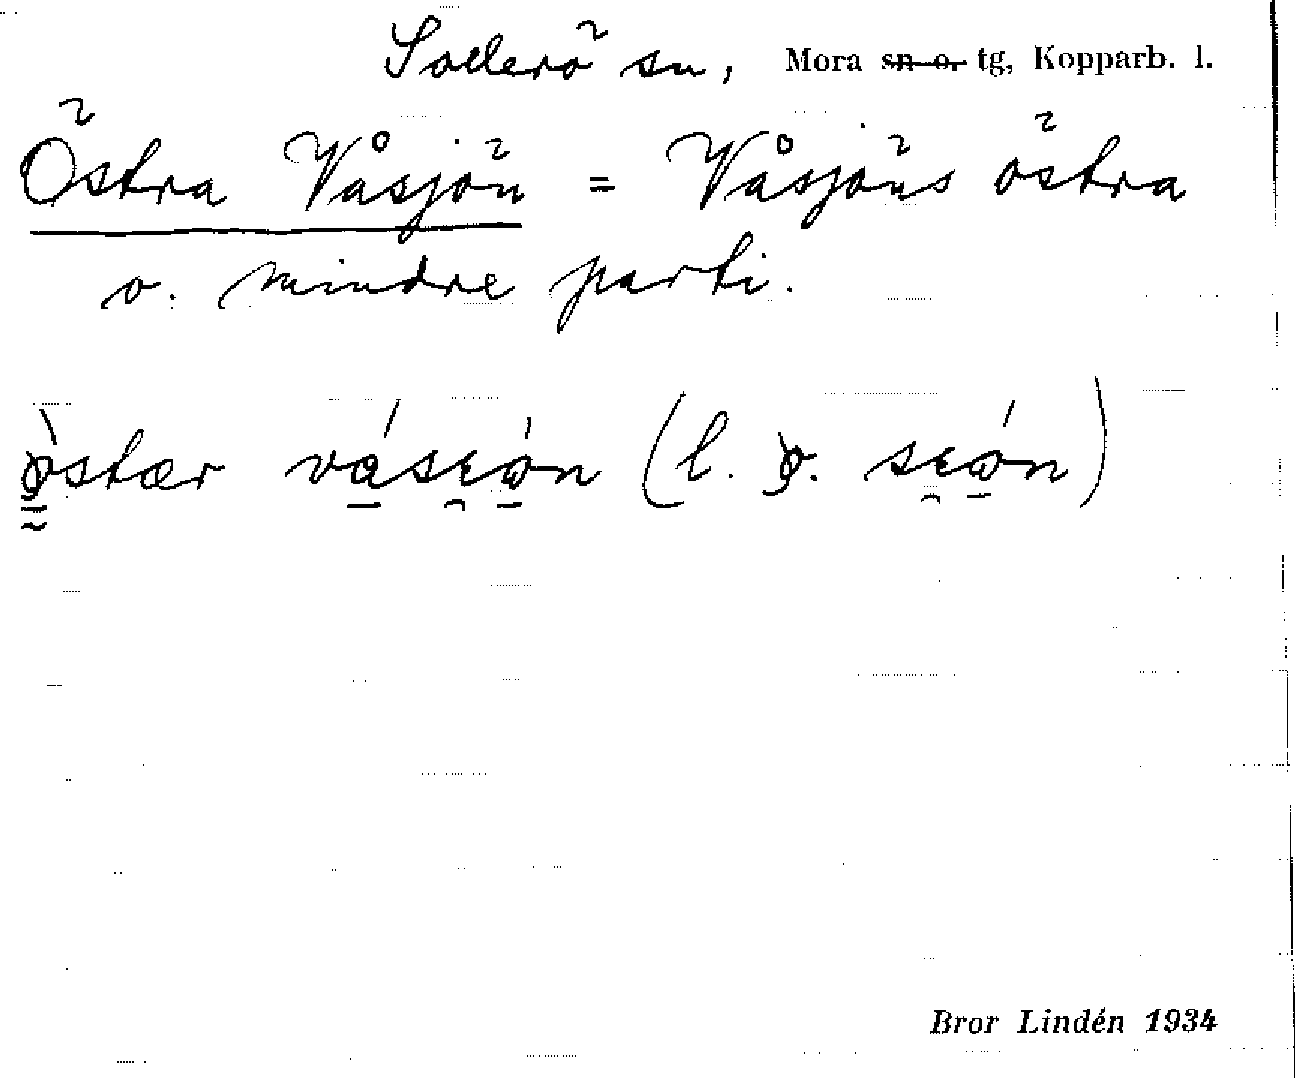 Sollerö sn, Mora sn o. tg, Kopparb. l.
Östra Våsjön = Våsjöns östra
o. mindre parti.
Bror Lindén 1934